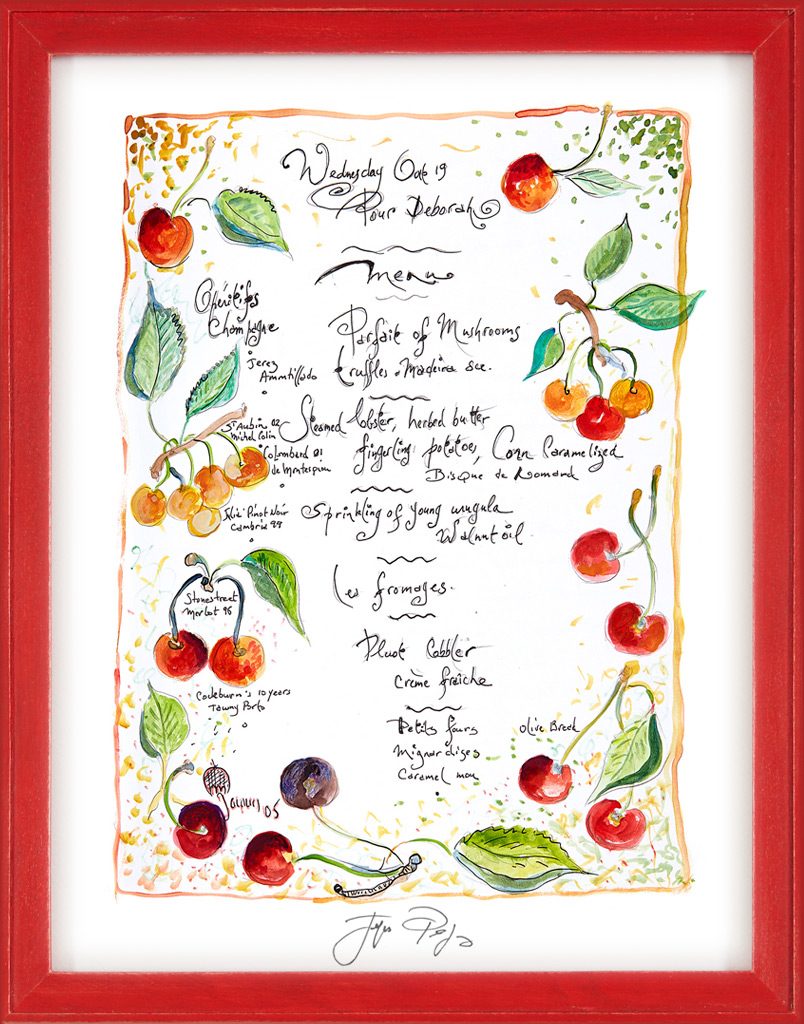 Wednesday Oct 19
Pour Deborah
Menu
Apéritifs
Champagne
Jerez
Ammtillado
Parfait of Mushrooms
truffles. Madeira sce.
St Aubin 02
Michel Colin
Colombard 01
de Montespun
Steamed lobster, herbed butter
fingerling potatoes, Corn Caramelized
Bisque de Homard
Pinot Noir
Cambria 99
Sprinkling of young arugula
Walnut oil.
Les fromages.
Stonestreet
Merlot 96
Pluot Cobbler
Crème fraîche
Cockburn's 10 years
Tawny Porto
Petits fours
Mignardises
Caramel mou
Olive Bread
05